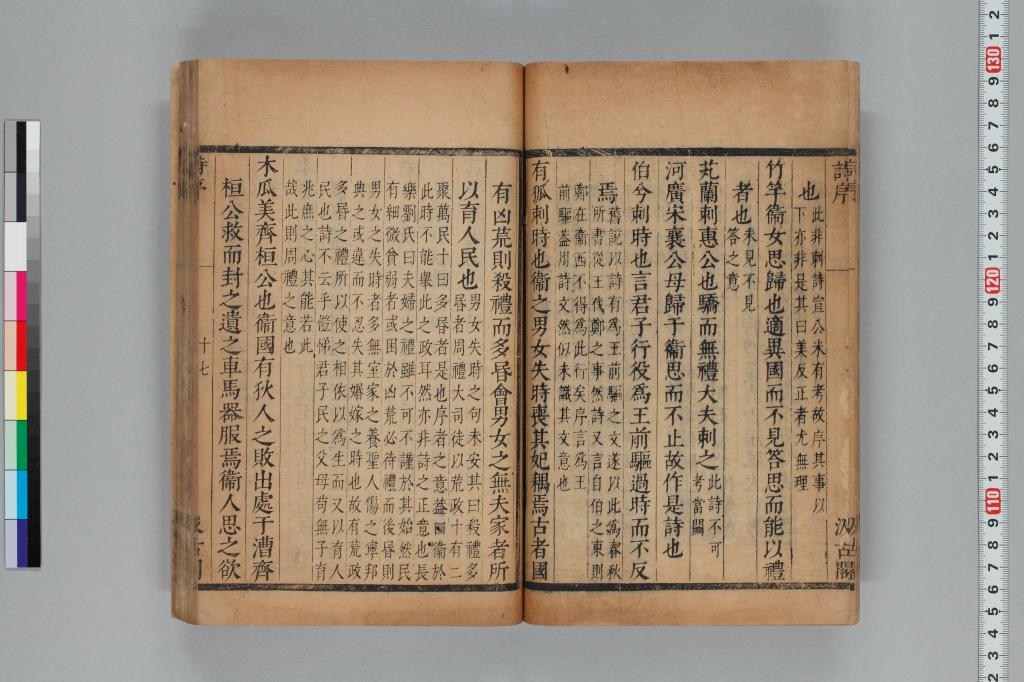 詩序 汲古閣
也
此非刺詩宣公未有考故序其事以
下亦非是其曰美反正者尤無理
竹竿衞女思歸也適異國而不見答思而能以禮
者也
未見不見
答之意
芄蘭刺惠公也驕而無禮大夫刺之
此詩不可
考當闕
河廣宋襄公母歸于衞思而不止故作是詩也
伯兮刺時也言君子行役爲王前驅過時而不反
焉
舊說以詩有爲王前驅之文遂以此爲春秋
所書從王伐鄭之事然詩又言自伯之東則
鄭在衞西不得爲此行矣序言爲王
前驅葢用詩文然似未識其文意也
有狐刺時也衞之男女失時喪其妃耦焉古者國
有凶荒則殺禮而多昏會男女之無夫家者所
以育人民也
男女失時之句未安其曰殺禮多
昏者周禮大司徒以荒政十有二
聚萬民十曰多昏者是也序者之意葢曰衞於
此時不能舉此之政耳然亦非詩之正意也長
樂劉氏曰夫婦之禮雖不可不謹於其始然民
有細微貧弱者或困於凶荒必待禮而後昏則
男女之失時者多無室家之養聖人傷之寧邦
典之或違而不忍失其婚嫁之時也故有荒政
多昏之禮所以使之相依以爲生而又以育人
民也詩不云乎愷悌君子民之父母苟無子育
兆庶之心其能若此
哉此則周禮之意也
木瓜美齊桓公也衞國有狄人之敗出處于漕齊
桓公救而封之遺之車馬器服焉衞人思之欲
十七